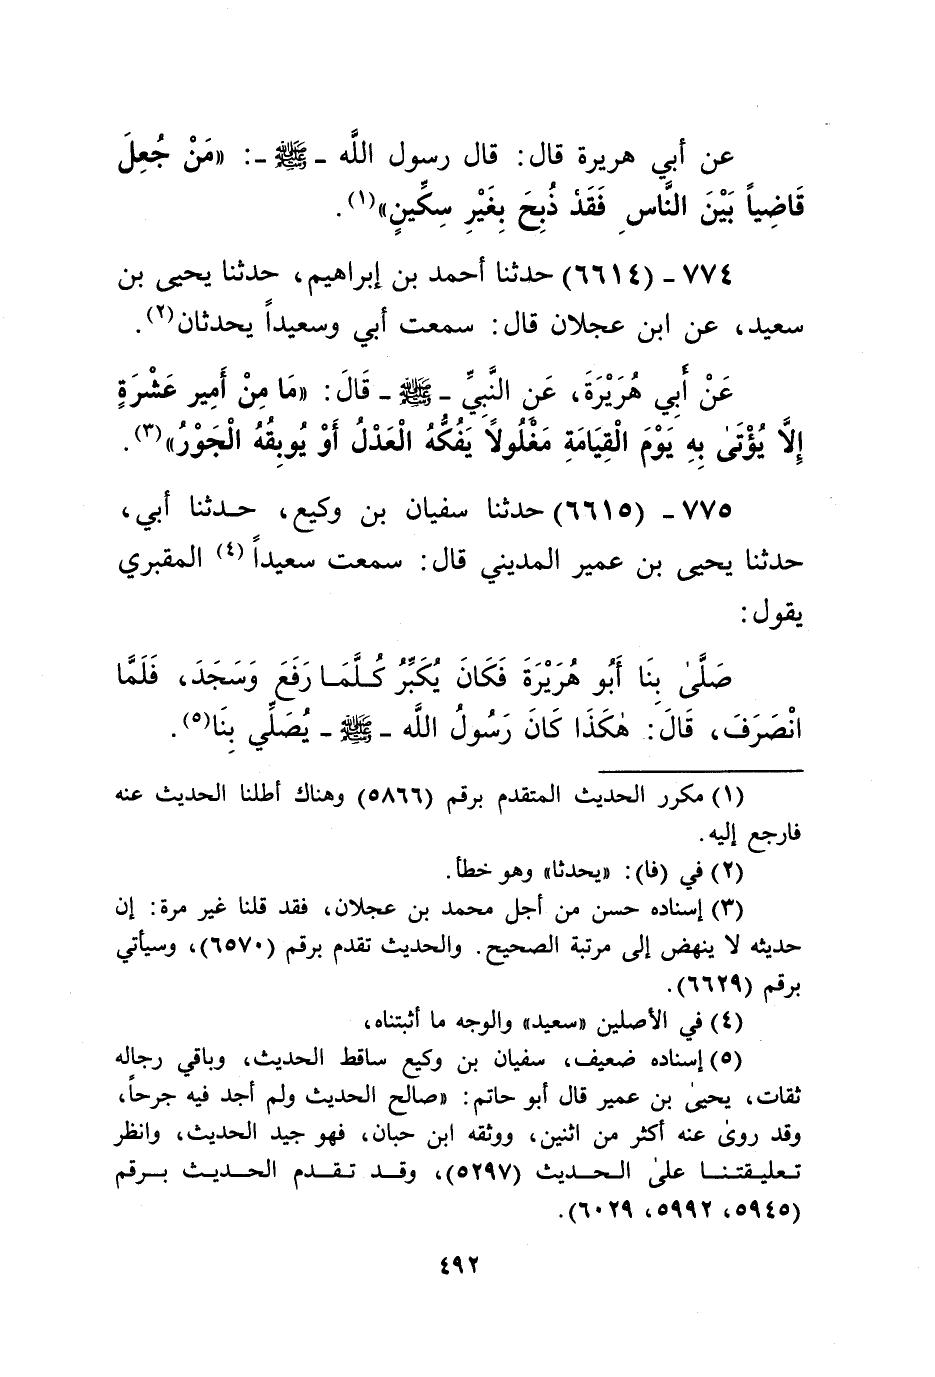 عن أبي هريرة قال: قال رسول اللَّه ـ ﷺ ـ: «مَنْ جُعِلَ
قَاضِياً بَيْنَ النَّاسِ فَقَدْ ذُبِحَ بِغَيْرِ سِكِّينٍ»(١).
٧٧٤ ـ (٦٦١٤) حدثنا أحمد بن إبراهيم، حدثنا يحيى بن
سعيد، عن ابن عجلان قال: سمعت أبي وسعيداً يحدثان(٢).
عَنْ أَبِي هُرَيْرَةَ، عَنِ النَّبِيِّ ـ ﷺ ـ قَالَ: «مَا مِنْ أَمِيرِ عَشْرَةٍ
إِلَّا يُؤْتَىٰ بِهِ يَوْمَ الْقِيَامَةِ مَغْلُولاً يَفُكُّهُ الْعَدْلُ أَوْ يُوبِقُهُ الْجَوْرُ»(٣).
٧٧٥ ـ (٦٦١٥) حدثنا سفيان بن وكيع، حـدثنا أبي،
حدثنا يحيى بن عمير المديني قال: سمعت سعيداً(٤) المقبري
يقول:
صَلَّىٰ بِنَا أَبُو هُرَيْرَةَ فَكَانَ يُكَبِّرُ كُـلَّمَـا رَفَعَ وَسَجَدَ، فَلَمَّا
انْصَرَفَ، قَالَ: هٰكَذَا كَانَ رَسُولُ اللَّه ـ ﷺ ـ يُصَلِّي بِنَا(٥).
(١) مكرر الحديث المتقدم برقم (٥٨٦٦) وهناك أطلنا الحديث عنه
فارجع إليه.
(٢) في (فا): «يحدثا» وهو خطأ.
(٣) إسناده حسن من أجل محمد بن عجلان، فقد قلنا غير مرة: إن
حديثه لا ينهض إلى مرتبة الصحيح. والحديث تقدم برقم (٦٥٧٠)، وسيأتي
برقم (٦٦٢٩).
(٤) في الأصلين «سعيد» والوجه ما أثبتناه،
(٥) إسناده ضعيف، سفيان بن وكيع ساقط الحديث، وباقي رجاله
ثقات، يحيىٰ بن عمير قال أبو حاتم: «صالح الحديث ولم أجد فيه جرحاً،
وقد روىٰ عنه أكثر من اثنين، ووثقه ابن حبان، فهو جيد الحديث، وانظر
تـعليـقتـنـا علىٰ الـحـديث (٥٢٩٧)، وقـد تـقـدم الحـديـث بـرقم
(٥٩٤٥، ٥٩٩٢، ٦٠٢٩).
٤٩٢